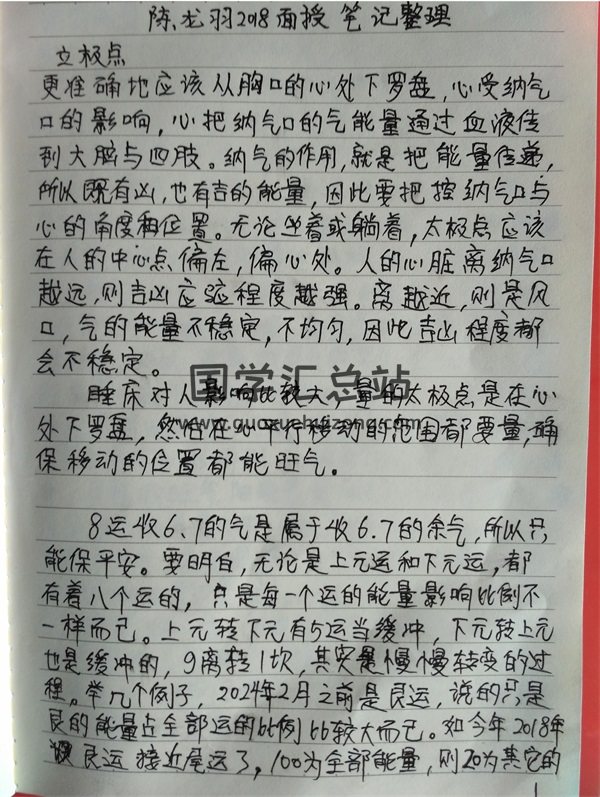 陈龙羽2018面授笔记整理
立极点
更准确地应该从胸口的心处下罗盘,心受纳气
口的影响,心把纳气口的气能量通过血液传
到大脑与四肢。纳气的作用,就是把能量传递,
所以既有凶,也有吉的能量,因此要把控纳气口与
心的角度和位置。无论坐着或躺着,太极点应该
在人的中心点偏左,偏心处。人的心脏离纳气口
越远,则吉凶应验程度越强。离越近,则是风
口,气的能量不稳定,不均匀,因此吉凶程度都
会不稳定。
国学汇总站
睡床对人影响比较大,量的太极点是在心
www.guoxuehuizong.com
处下罗盘,然后在心平行移动的范围都要量,确
保移动的位置都能旺气。
8运收6.7的气是属于收6.7的余气,所以只
能保平安。要明白,无论是上元运和下元运,都
有着八个运的,只是每一个运的能量影响比例不
一样而已。上元转下元有5运当缓冲,下元转上元
也是缓冲的,9离转1坎,其实是慢慢转变的过
程。举几个例子,2024年2月之前是艮运,说的只是
艮的能量占全部运的比例比较大而已。如今年2018年
艮运接近尾运了,100为全部能量,则20为其它的
1